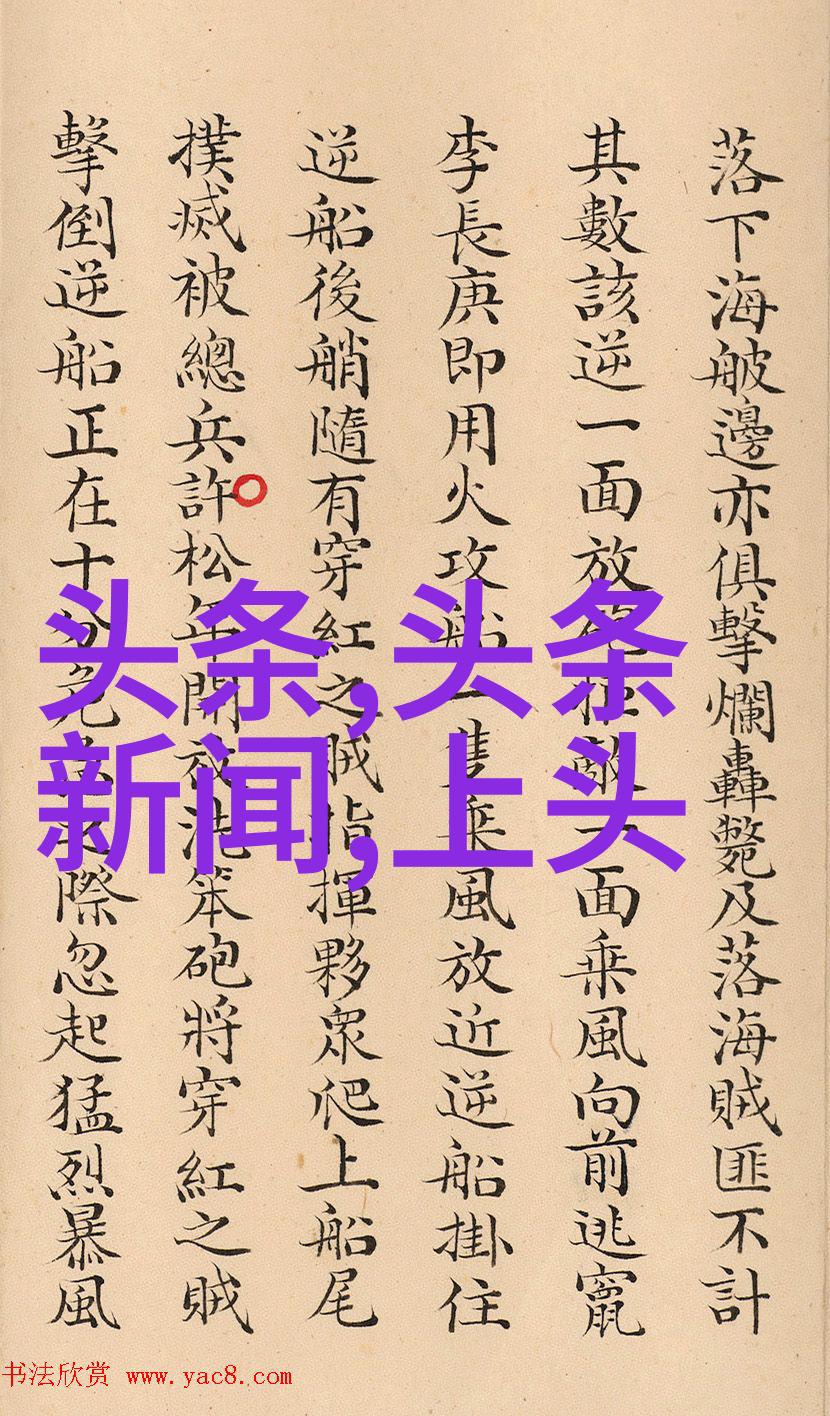 落下海舨邊亦俱擊爛轟斃及落海賊匪不計
其數該逆一面放砲拒敵一面乘風向前逃竄
李長庚即用火攻船一隻乘風放近逆船掛住
逆船後艄隨有穿紅之賊指揮夥眾爬上船尾
撲滅被總兵許松年開放洗笨砲將穿紅之賊
擊倒逆船正在十分危急之際忽起猛烈暴風
头条,头条
新闻,上头
书法欣赏 www.yac8.com